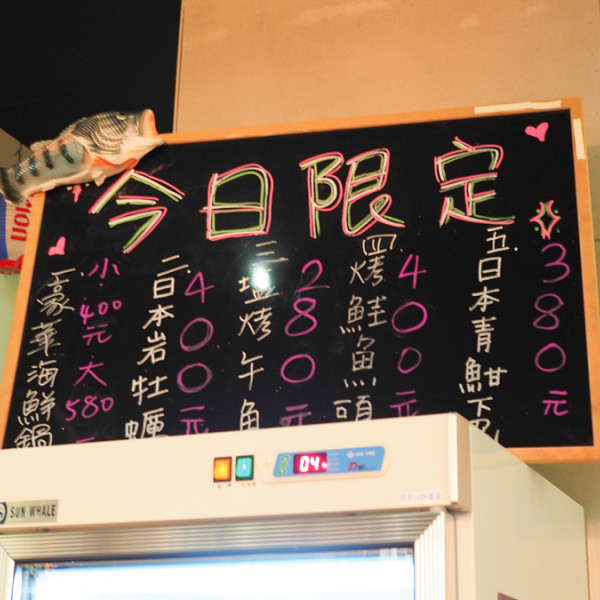 今日限定
一.豪華海鮮鍋
小400元
大580
二.日本岩牡蠣
400元
三.塩烤午
280元
四.烤鮭魚頭
400元
五.日本青魽下
380元
04.
SUN WHALE